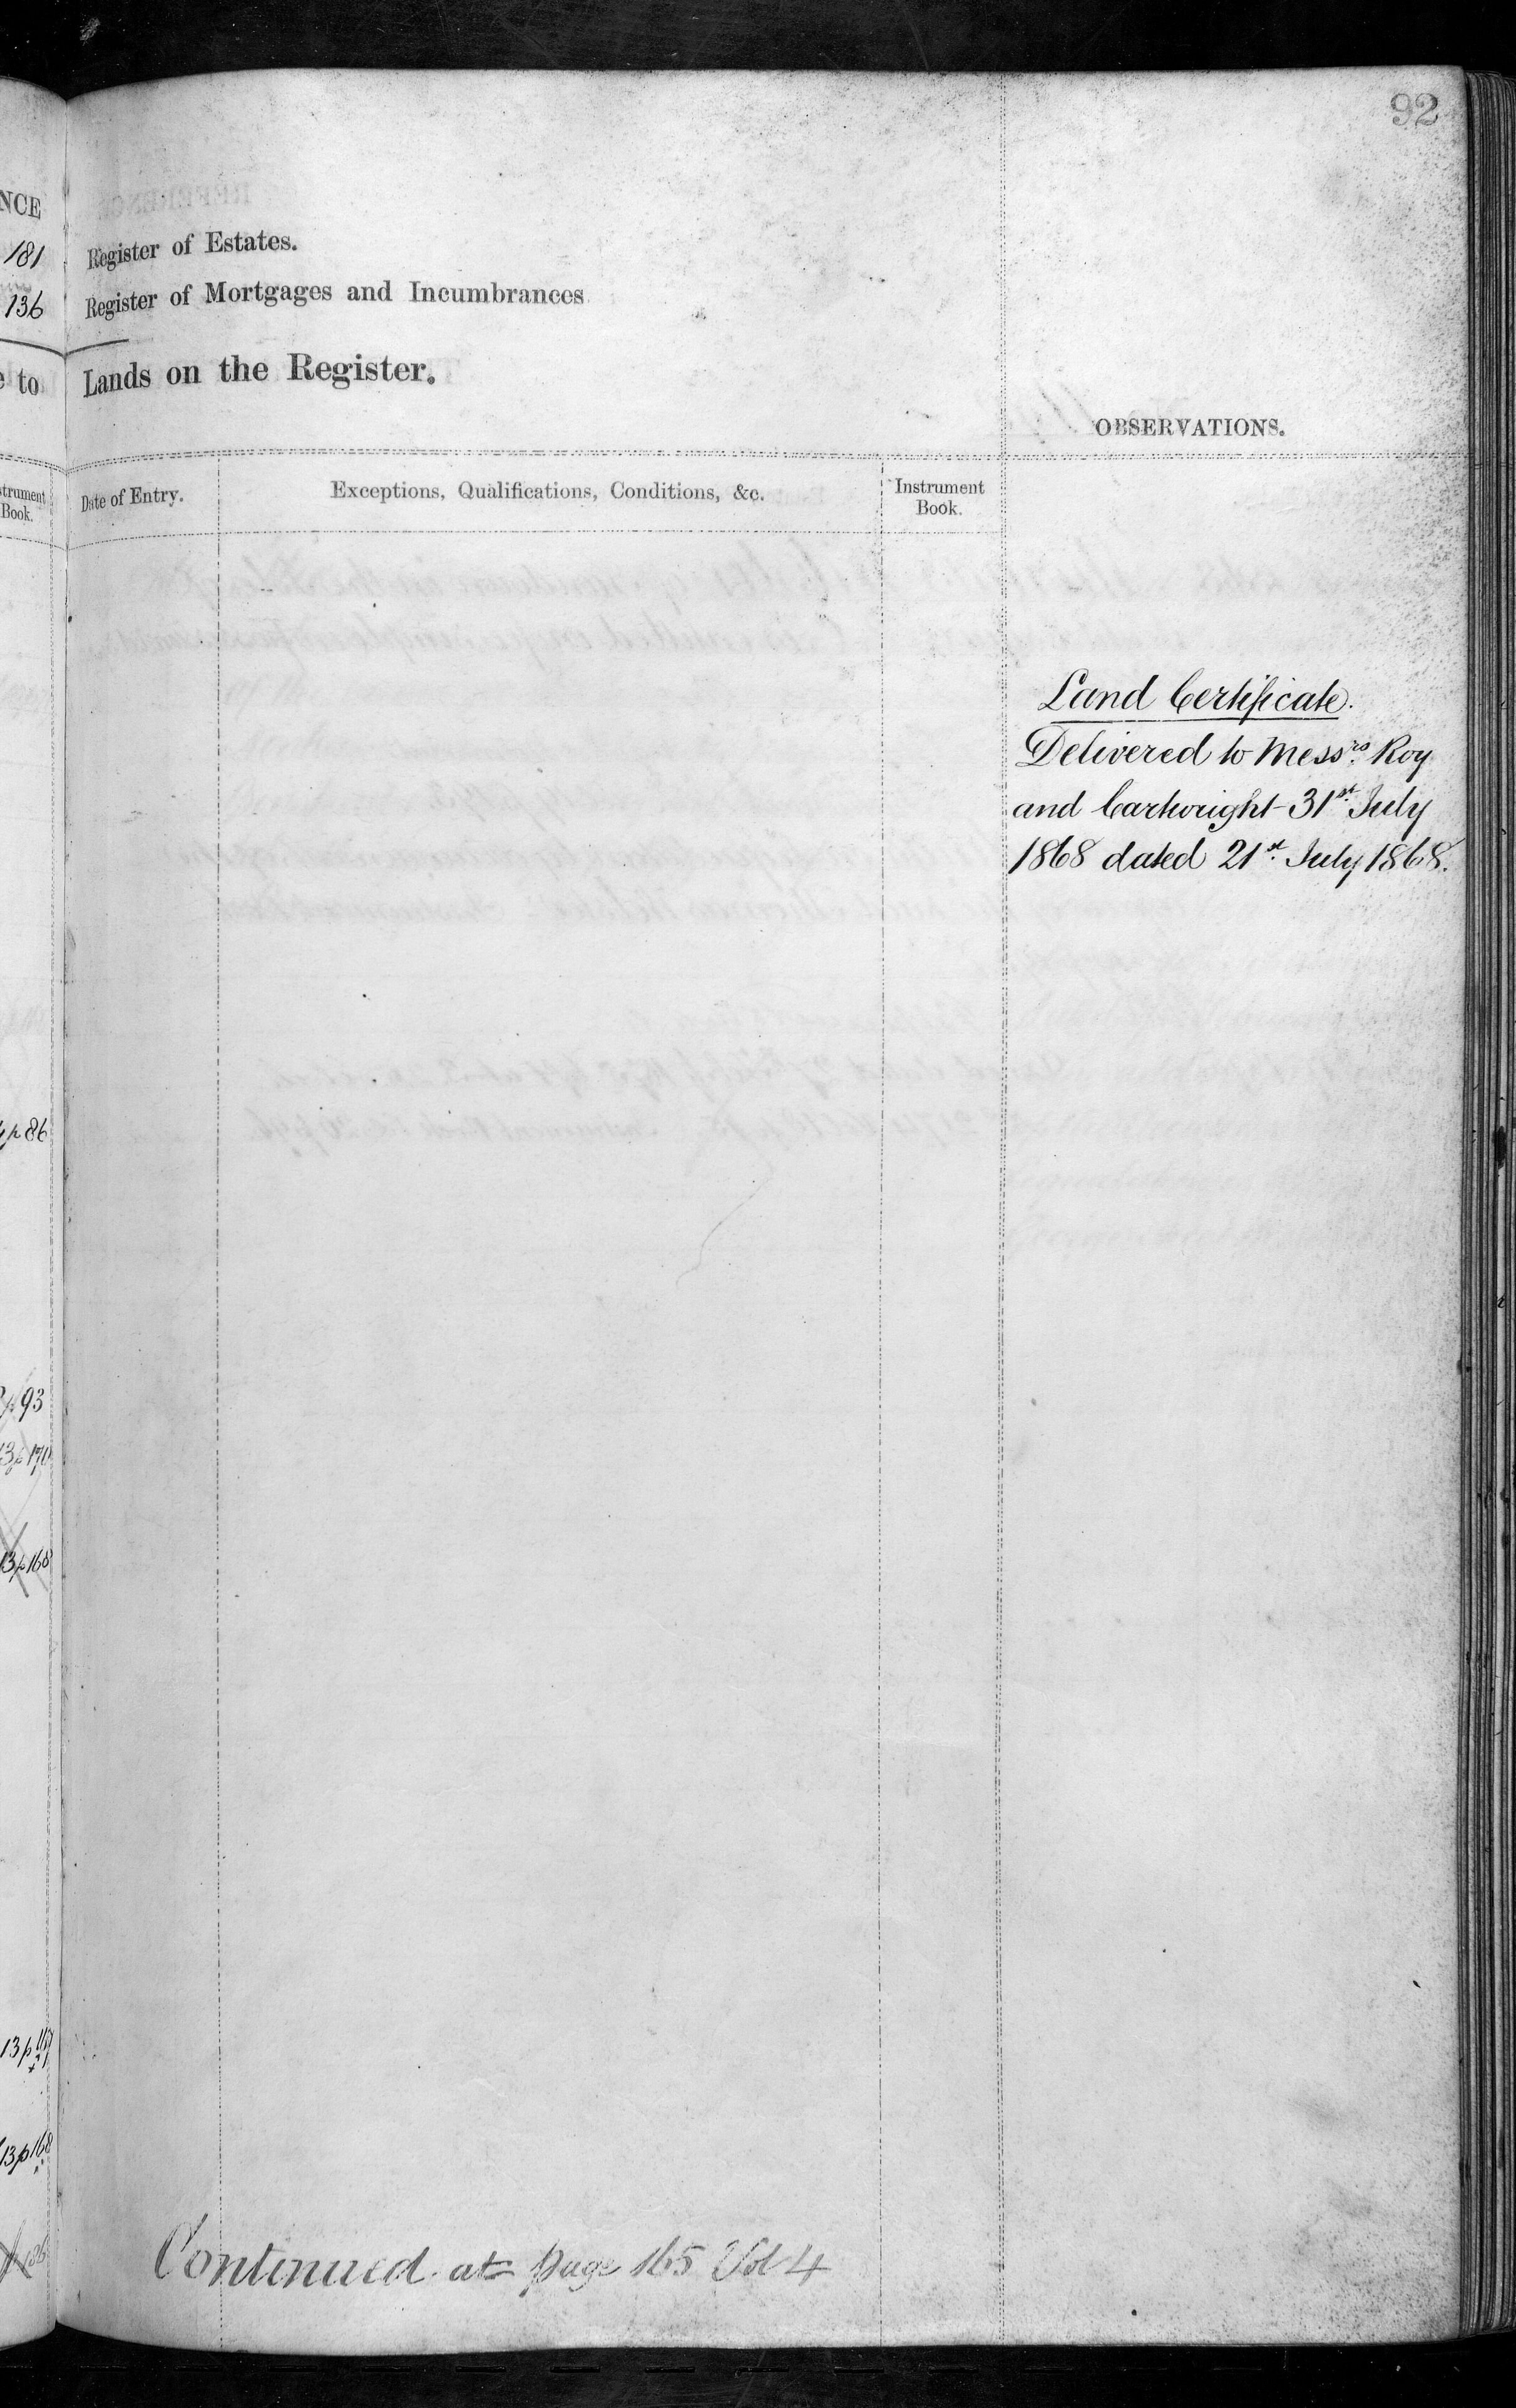 92
NCE
181 Register of Estates.
136 Register of Mortgages and Incumbrances
to Lands on the Register.
OBSERVATIONS.
strument Book.
Date of Entry.
Exceptions, Qualifications, Conditions, &c.
Instrument Book.
Land Certificate.
Delivered to Messrs. Roy
and Cartwright 31st. July
1868 dated 21st. July 1868.
p 86
p 93
13 p 170
13 p 168
13 p
13 p 168
Continued at page 165 Vol 4